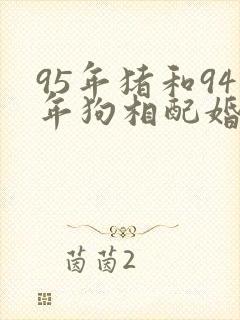 95年猪和94
年狗相配婚
茵茵2